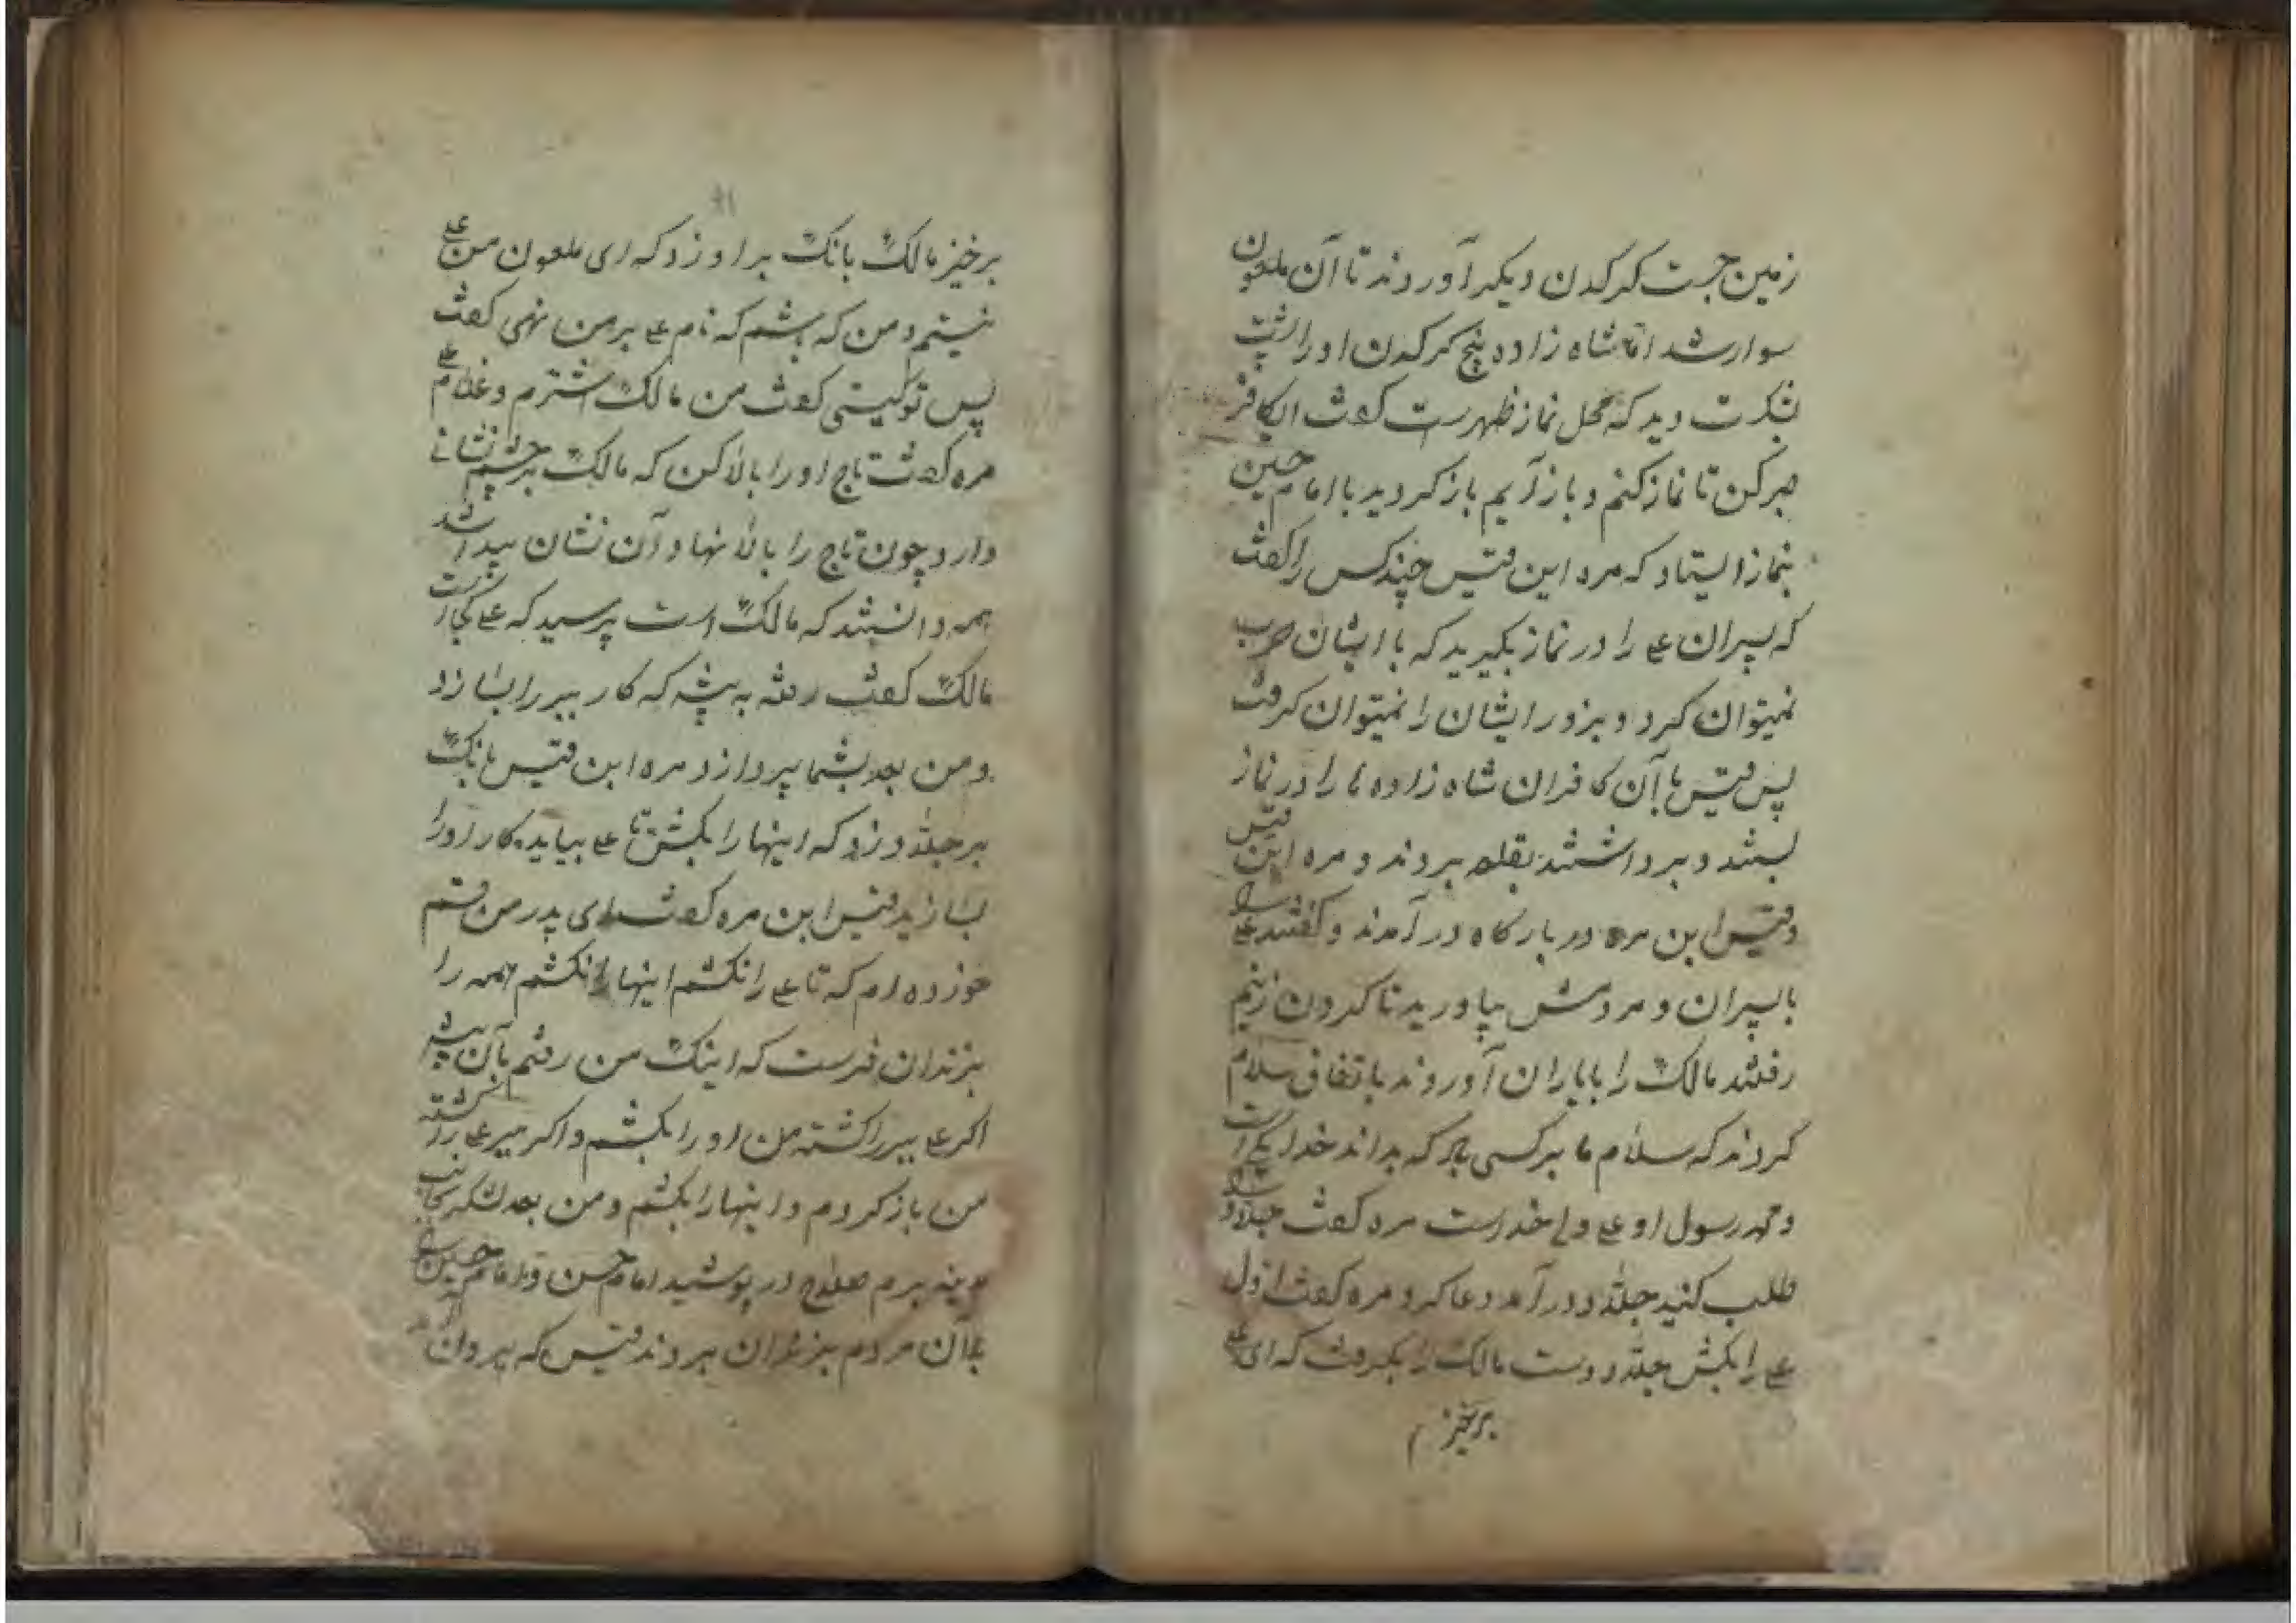 زمین جست کرکدن دیکر آوردند تا آن ملعون
سوار شد اما شاه زاده پنج کرکدن او را
نکرست دید که محل نماز ظهرست کفت ای کافر
صبر کن تا نماز کنم و باز آیم باز کردید با امام حسین
بنماز ایستاد که مره ابن قیس چند کس را کفت
که پسران علی را در نماز بکیرید که با ایشان حرب
نمیتوان کرد و بزور ایشان را نمیتوان کرفت
پس قیس با آن کافران شاه زاده ها را در نماز
بستند و برداشتند بقلعه بردند و مره ابن قیس
و قیس ابن مره در بارکاه در آمدند و کفتند علی را
با پسران و مردمش بیاورید تا کردن زنیم
رفتند مالک را با یاران آوردند باتفاق سلام
کردند که سلام ما بر کسی باد که بداند خدا یکی است
و محمد رسول او علی ولی خداست مره کفت جلاد را
طلب کنید جلاد در آمد دعا کرد مره کفت اول
علی را بکش جلاد دست مالک را بکرفت که ای علی
برخیز
۴۱
برخیز مالک بانک بر او زد که ای ملعون من علی
نیستم و من که باشم که نام علی بر من نهی کفت
پس تو کیستی کفت من مالک اشترم و غلام علی
مره کفت تاج او را بالا کن که مالک بر چشم نشانی
دارد چون تاج را بالا نهاد آن نشان پیدا شد
همه دانستند که مالک است پرسید که علی کجاست
مالک کفت رفته به بیشه که کار ببر را بسازد
و من بعد بشما پردازد مره ابن قیس بانک
بر جلاد زد که اینها را بکش تا علی بیاید کار او را
بسازید قیس ابن مره کفت ای پدر من قسم
خورده ام که تا علی را نکشم اینها را نکشم همه را
بزندان فرست که اینک من رفتم بآن بیشه
اکر علی ببر را کشته من او را بکشم و اکر ببر علی را کشته
من باز کردم و اینها را بکشم و من بعد لشکر بجانب
مدینه برم صلاح در پوشید امام حسن و امام حسین را
با آن مردم بزندان بردند قیس که بیرون آمد